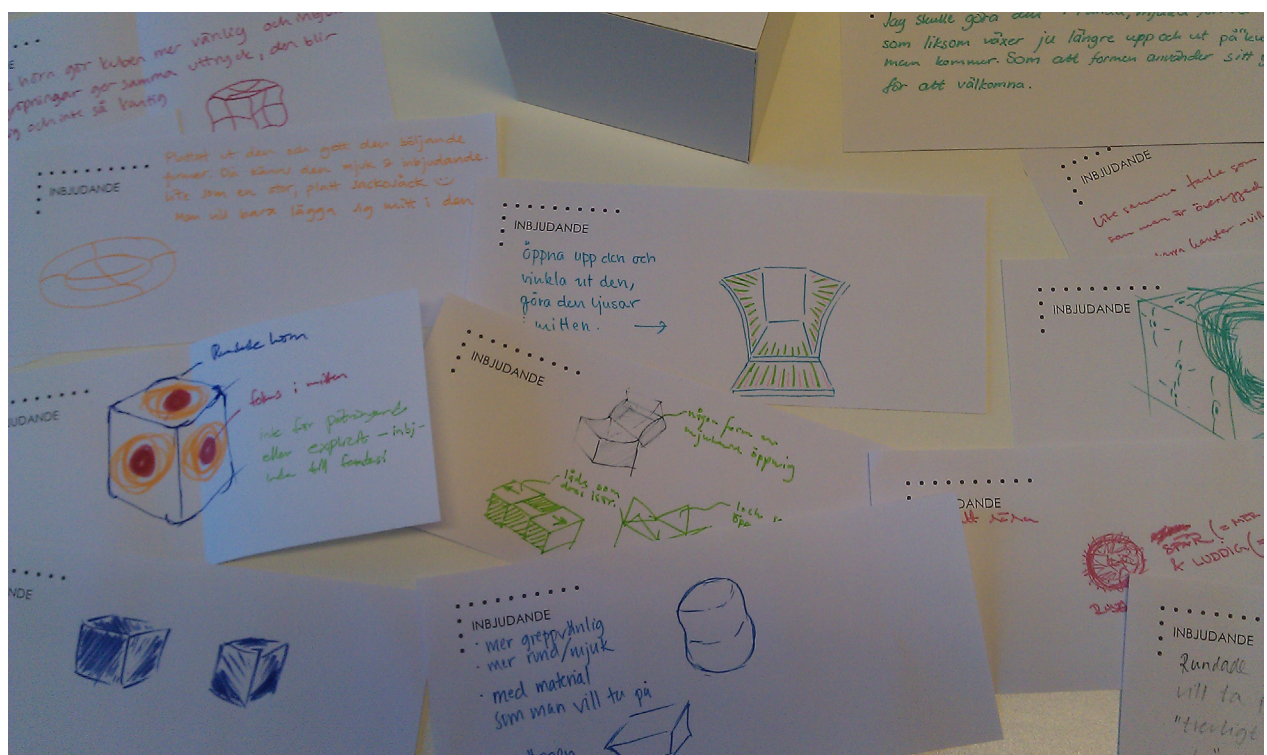 hörn gör kuben mer vänlig och
ger samma uttryck, den blir
och inte så kantig
Jag skulle göra den
som liksom växer ju längre upp och ut på
man kommer. Som att formen använder sitt
för att välkomna.
INBJUDANDE
Plattat ut den och gett den böljande
former. Då känns den mjuk & inbjudande.
lite som en stor, platt sackosäck
Man vill bara lägga sig mitt i den
INBJUDANDE
Lite samma tanke som
som man är
INBJUDANDE
öppna upp den och
vinkla ut den,
göra den ljusar
i mitten.
INBJUDANDE
Rundade hörn
fokus i mitten
inte för påträngande
eller explicit – inbj-
uder till fantasi
INBJUDANDE
någon form av
mjukare öppning
låda som
dras isär.
INBJUDANDE
& LUDDIG
INBJUDANDE
· mer greppvänlig
· mer rund/mjuk
· med material
som man vill ta på
INBJUDANDE
Rundade
vill ta
"trevligt